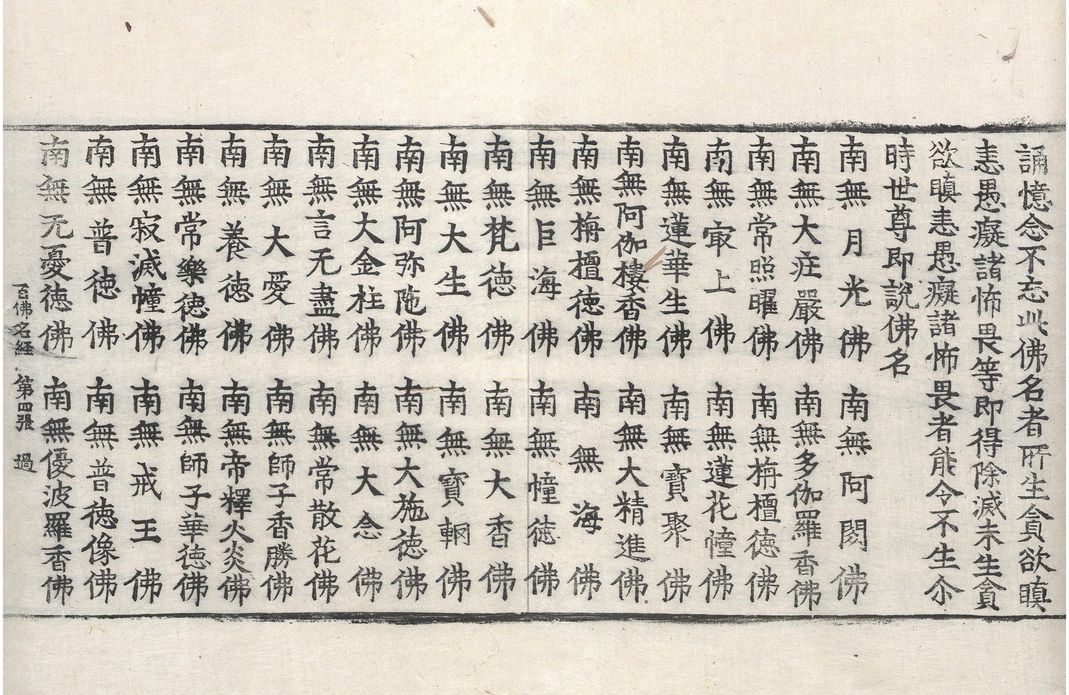 誦憶念不忘此佛名者所生貪欲瞋
恚愚癡諸怖畏等即得除滅未生貪
欲瞋恚愚癡諸怖畏者能令不生尒
時世尊即說佛名
南無月光佛 南無阿閦佛
南無大莊嚴佛 南無多伽羅香佛
南無常照曜佛 南無栴檀德佛
南無冣上佛 南無蓮花幢佛
南無蓮華生佛 南無寶聚佛
南無阿伽樓香佛 南無大精進佛
南無栴檀德佛 南無海佛
南無巨海佛 南無幢德佛
南無梵德佛 南無大香佛
南無大生佛 南無寶輞佛
南無阿弥陁佛 南無大施德佛
南無大金柱佛 南無大念佛
南無言无盡佛 南無常散花佛
南無大愛佛 南無師子香勝佛
南無養德佛 南無帝釋火炎佛
南無常樂德佛 南無師子華德佛
南無寂滅幢佛 南無戒王佛
南無普德佛 南無普德像佛
南無无憂德佛 南無優波羅香佛
百佛名経 第四張 過